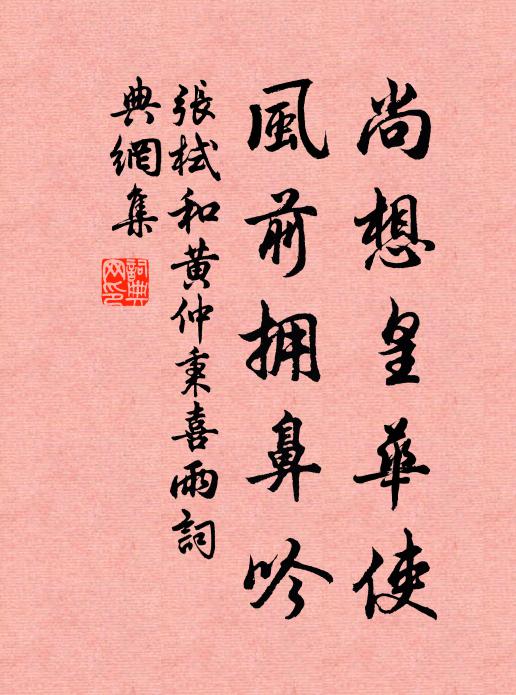 尚想皇華使
風前拥鼻吟
張栻和黃仲秉喜雨詞
典網集
詞典
网印